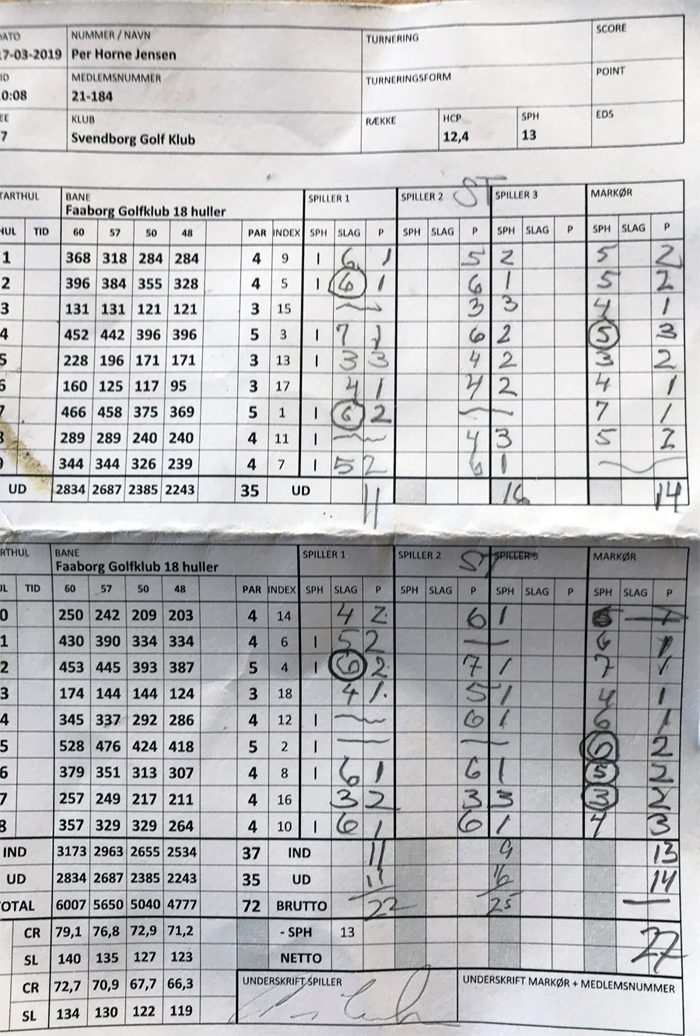 DATO NUMMER / NAVN TURNERING SCORE
17-03-2019 Per Horne Jensen
MEDLEMSNUMMER TURNERINGSFORM POINT
0:08 21-184
KLUB RÆKKE HCP SPH EDS
7 Svendborg Golf Klub 12,4 13
ST
TARTHUL BANE SPILLER 1 SPILLER 2 SPILLER 3 MARKØR
Faaborg Golfklub 18 huller
HUL TID 60 57 50 48 PAR INDEX SPH SLAG P SPH SLAG P SPH SLAG P SPH SLAG P
1 368 318 284 284 4 9 1 6 1 5 2 5 2
2 396 384 355 328 4 5 1 6 1 6 1 5 2
3 131 131 121 121 3 15 — 3 3 4 1
4 452 442 396 396 5 3 1 7 1 6 2 5 3
5 228 196 171 171 3 13 1 3 3 4 2 3 2
6 160 125 117 95 3 17 4 1 4 2 4 1
7 466 458 375 369 5 1 1 6 2 — 7 1
8 289 289 240 240 4 11 1 — 4 3 5 2
9 344 344 326 239 4 7 1 5 2 6 1 —
UD 2834 2687 2385 2243 35 UD 11 16 14
ARTHUL BANE SPILLER 1 SPILLER 2 ST SPILLER 3 MARKØR
Faaborg Golfklub 18 huller
UL TID 60 57 50 48 PAR INDEX SPH SLAG P SPH SLAG P SPH SLAG P SPH SLAG P
0 250 242 209 203 4 14 4 2 6 1 —
1 430 390 334 334 4 6 1 5 2 — 6 1
2 453 445 393 387 5 4 1 6 2 7 1 7 1
3 174 144 144 124 3 18 4 1 5 1 4 1
4 345 337 292 286 4 12 1 — 6 1 6 1
5 528 476 424 418 5 2 1 — — 6 2
6 379 351 313 307 4 8 1 6 1 6 1 5 2
7 257 249 217 211 4 16 3 2 3 3 3 2
8 357 329 329 264 4 10 1 6 1 6 1 4 3
IND 3173 2963 2655 2534 37 IND 11 9 13
UD 2834 2687 2385 2243 35 UD 11 16 14
TOTAL 6007 5650 5040 4777 72 BRUTTO 22 25 —
CR 79,1 76,8 72,9 71,2 - SPH 13 27
SL 140 135 127 123 NETTO
CR 72,7 70,9 67,7 66,3 UNDERSKRIFT SPILLER UNDERSKRIFT MARKØR + MEDLEMSNUMMER
SL 134 130 122 119